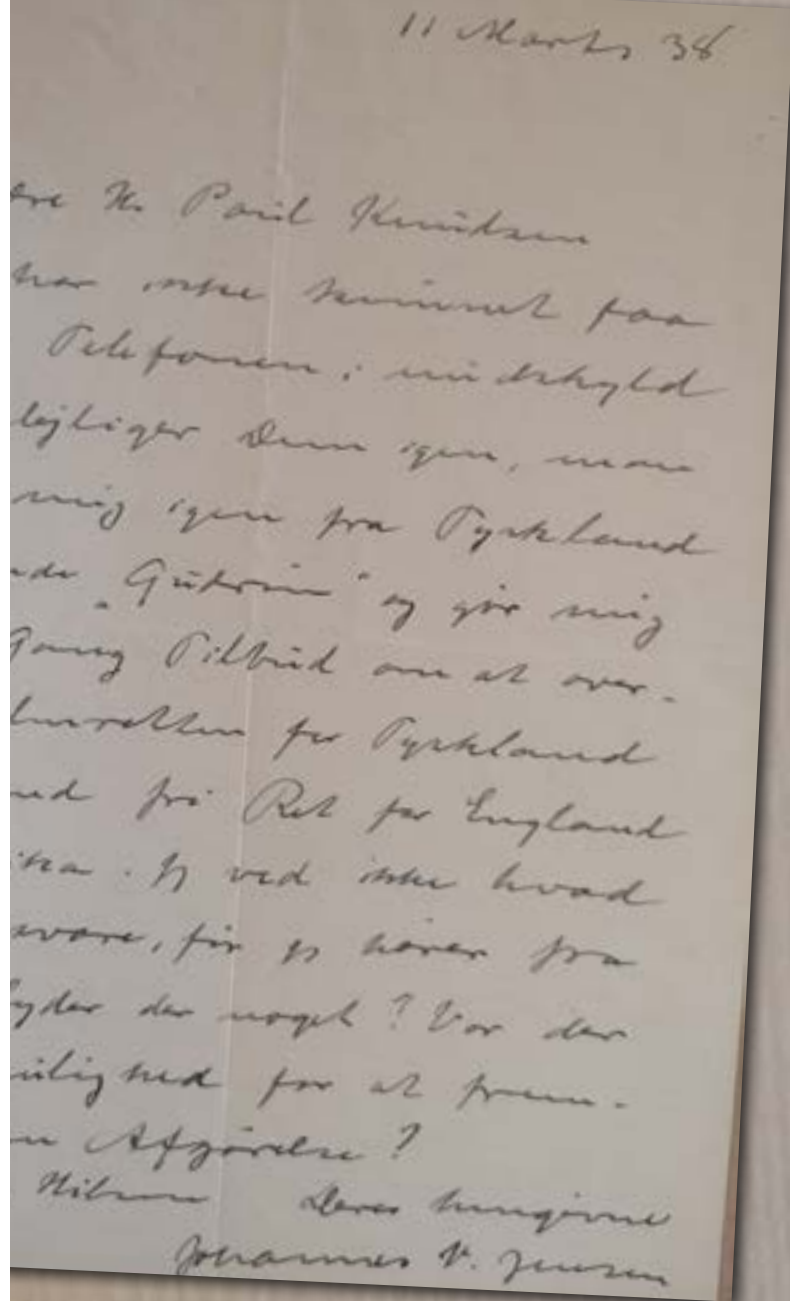 11 Marts 38
Hr. Poul Knudsen
har ikke kunnet faa
Telefonen; undskyld
lejliger Dem igen, man
mig igen fra Tyskland
"Gudrun" og gør mig
Gang Tilbud om at over-
lmretten for Tyskland
med fri Ret for England
ika. Jg ved ikke hvad
svare, før jg hører fra
yder der noget? Var der
ulighed for at frem-
Afgørelse?
Hilsen Deres hengivne
Johannes V. Jensen